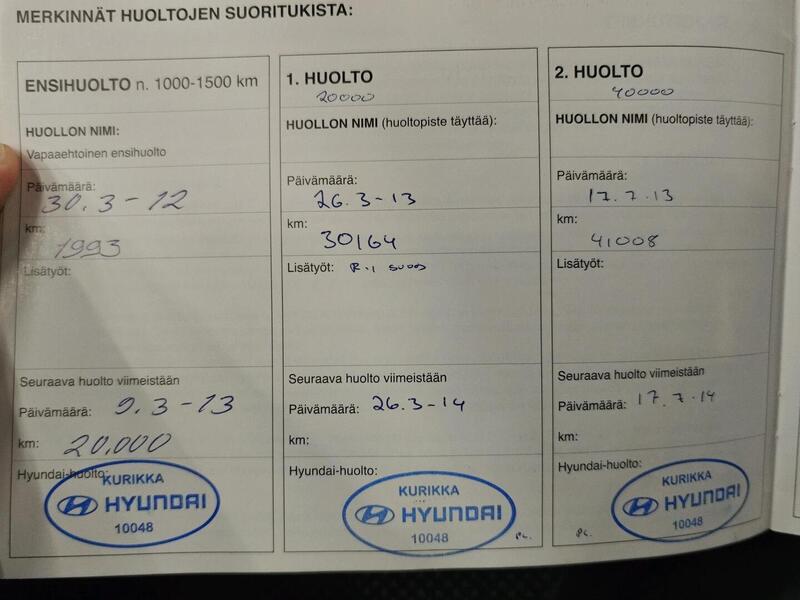 MERKINNÄT HUOLTOJEN SUORITUKISTA:
ENSIHUOLTO n. 1000-1500 km
HUOLLON NIMI:
Vapaaehtoinen ensihuolto
Päivämäärä:
30.3-12
km:
1993
Lisätyöt:
Seuraava huolto viimeistään
Päivämäärä: 9.3-13
km: 20.000
Hyundai-huolto:
KURIKKA
HYUNDAI
10048
1. HUOLTO
20000
HUOLLON NIMI (huoltopiste täyttää):
Päivämäärä:
26.3-13
km:
30164
Lisätyöt:
Seuraava huolto viimeistään
Päivämäärä: 26.3-14
km:
Hyundai-huolto:
KURIKKA
HYUNDAI
10048
2. HUOLTO
40000
HUOLLON NIMI (huoltopiste täyttää):
Päivämäärä:
17.7.13
km:
41008
Lisätyöt:
Seuraava huolto viimeistään
Päivämäärä: 17.7.14
km:
Hyundai-huolto:
KURIKKA
HYUNDAI
10048